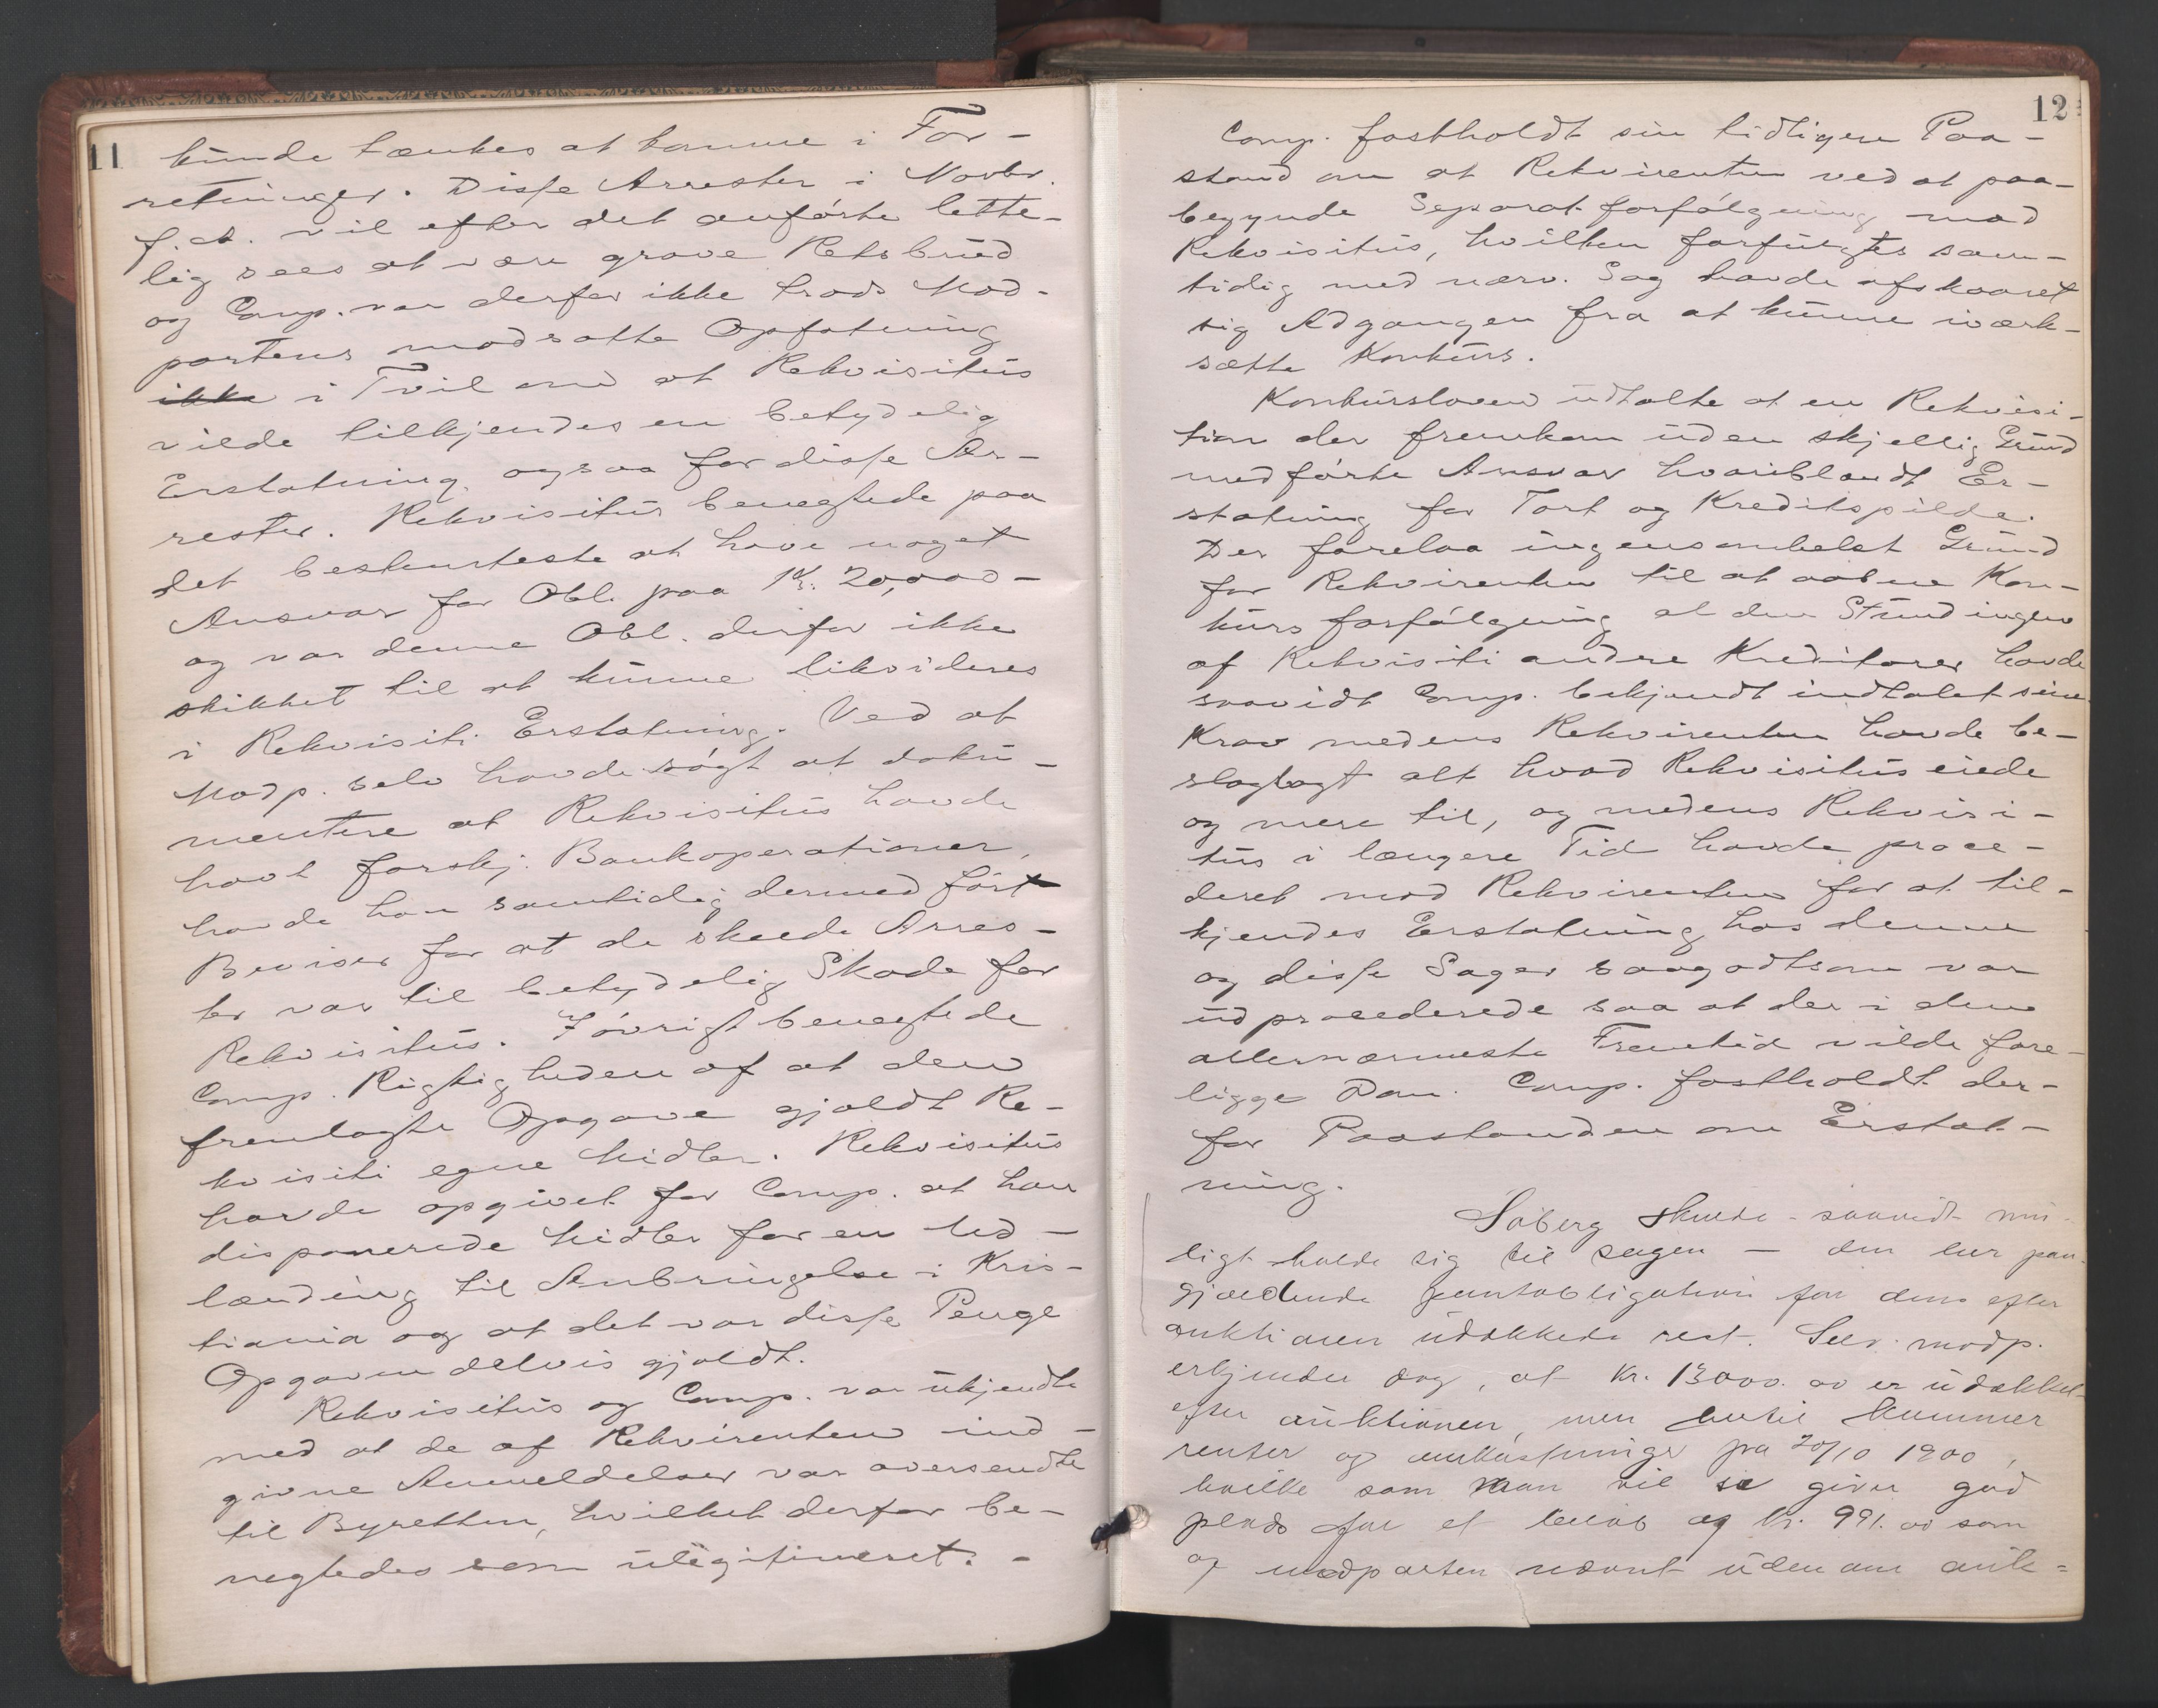 11
kunde tænkes at komme i For-
retninger. Disse Arrester i Novbr.
f. A. vil efter det anførte lette-
lig sees at være grove Retsbrud
og Comp. var derfor ikke trods Mod-
partens modsatte Opfatning
ikke i Tvil om at Rekvisitus
vilde tilkjendes en betydelig
Erstatning ogsaa for disse Ar-
rester. Rekvisitus benegtede paa
det bestemteste at have noget
Ansvar for Obl. paa Kr. 20,000-
og var denne Obl. derfor ikke
skikket til at kunne likvideres
i Rekvisiti Erstatning. Ved at
Modp. selv havde søgt at doku-
mentere at Rekvisitus havde
havt forskj. Bankoperationer,
havde han samtidig dermed ført
Beviser for at de skeede Arres-
ter var til betydelig Skade for
Rekvisitus. Iøvrigt benegtede
Comp. Rigtigheden af at den
fremlagte Opgave gjaldt Re-
kvisiti egne Midler. Rekvisitus
havde opgivet for Comp. at han
disponerede Midler for en Ud-
lænding til Anbringelse i Kris-
tiania og at det var disse Penge
Opgaven delvis gjaldt.
Rekvisitus og Comp. var ukjendte
med at de af Rekvirenten ind-
givne Anmeldelser var oversendte
til Byretten, hvilket derfor be-
negtedes som ulegitimeret. -
12
Comp. fastholdt sin tidligere Paa-
stand om at Rekvirenten ved at paa-
begynde Separatforfølgning mod
Rekvisitus, hvilken forfulgtes sam-
tidig med nærv. Sag havde afskaaret
sig Adgangen fra at kunne iværk-
sætte Konkurs.
Konkursloven udtalte at en Rekvisi-
tion der fremkom uden skjellig Grund
medførte Ansvar hvoriblandt Er-
statning for Tort og Kreditspilde.
Der forelaa ingensomhelst Grund
for Rekvirenten til at aabne Kon-
kursforfølgning at den Stund ingen
af Rekvisiti andre Kreditorer havde
saavidt Comp. bekjendt indtalet sine
Krav medens Rekvirenten havde be-
slaglagt alt hvad Rekvisitus eiede
og mere til, og medens Rekvisi-
tus i længere Tid havde proce-
deret mod Rekvirenten for at til-
kjendes Erstatning hos denne
og disse Sager saagodtsom var
udprocederede saa at der i den
allernærmeste Fremtid vilde fore-
ligge Dom. Comp. fastholdt der-
for Paastanden om Erstat-
ning.
Solberg skulde - saavidt mu-
ligt holde sig til sagen - den her paa-
gjældende pantobligation for den efter
auktionen udækkede rest. Selv modp.
erkjender dog, at Kr. 13000.00 er udækket
efter auktionen, men hertil kommer
renter og omkostninger fra 20/10 1900,
hvilke som man vil se giver god
plads for et beløb af Kr. 991.00 som
af modparten nævnt udenom auk=